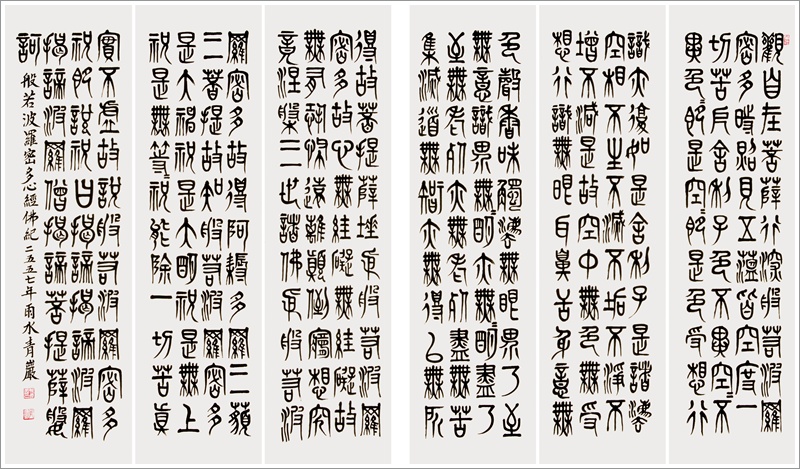 觀自在菩薩行深般若波羅
密多時照見五蘊皆空度一
切苦厄舍利子色不異空〻不
異色〻即是空〻即是色受想行
識亦復如是舍利子是諸法
空相不生不滅不垢不淨不
增不減是故空中無色無受
想行識無眼耳鼻舌身意無
色聲香味觸法無眼界乃至
無意識界無〻明亦無〻明盡乃
至無老死亦無老死盡無苦
集滅道無智亦無得以無所
得故菩提薩埵依般若波羅
密多故心無罣礙無罣礙故
無有恐怖遠離顛倒夢想究
竟涅槃三世諸佛依般若波
羅密多故得阿耨多羅三藐
三菩提故知般若波羅密多
是大神祝是大明祝是無上
祝是無等〻祝能除一切苦真
實不虛故說般若波羅密多
祝即說祝曰揭諦揭諦波羅
揭諦波羅僧揭諦菩提薩婆
訶
般若波羅密多心經佛紀二五五七年雨水青巖